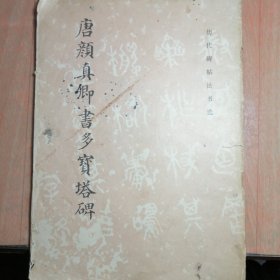 歷代碑帖法书选
唐顔真卿書多寳塔碑